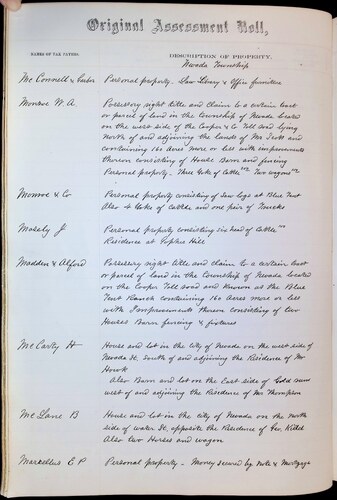 Original Assessment Roll,
NAMES OF TAX PAYERS.
DESCRIPTION OF PROPERTY.
Nevada Township
McConnell & Personal property. Law Library & Office furniture
Monroe W. A. Possessory right title and Claim to a certain Lot
or parcel of land in the Township of Nevada located
on the west side of the Cooper & Co Toll road lying
North of and adjoining the lands of Mr Scott and
containing 160 acres more or less with improvements
thereon consisting of House Barn and fencing
Personal property. Three Yokes of Cattle Two wagons
Monroe & Co Personal property consisting of Saw logs at Blue Tent
Also 4 Yokes of Cattle and one pair of Trucks
J Personal property consisting six head of Cattle
Residence at Hill
Madden & Alford Possessory right title and claim to a certain Lot
or parcel of land in the Township of Nevada located
on the Cooper Toll road and known as the Blue
Tent Ranch containing 160 acres more or less
with Improvements thereon consisting of two
Houses Barn fencing & fixtures
McCarty H House and lot in the City of Nevada on the west side of
Nevada St, South of and adjoining the Residence of Mr
Hawk
Also Barn and lot on the East side of Gold
west of and adjoining the Residence of Mr Thompson
McLane B House and lot in the City of Nevada on the North
side of water St, opposite the Residence of Geo. Kidd
Also two Horses and wagon
Marcellus E P Personal property. Money secured by note & Mortgage